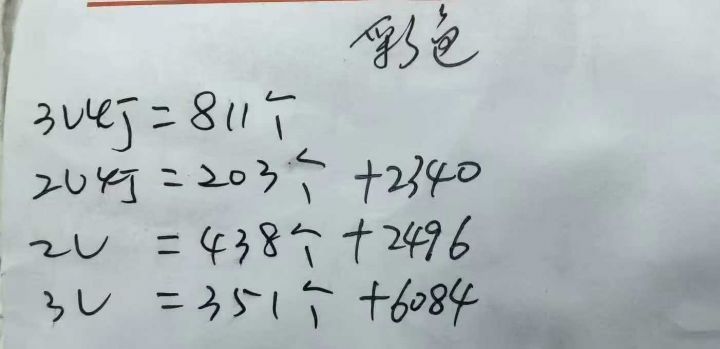 彩色
3U灯=811个
2U灯=203个 +2340
2U =438个 +2496
3U =351个 +6084